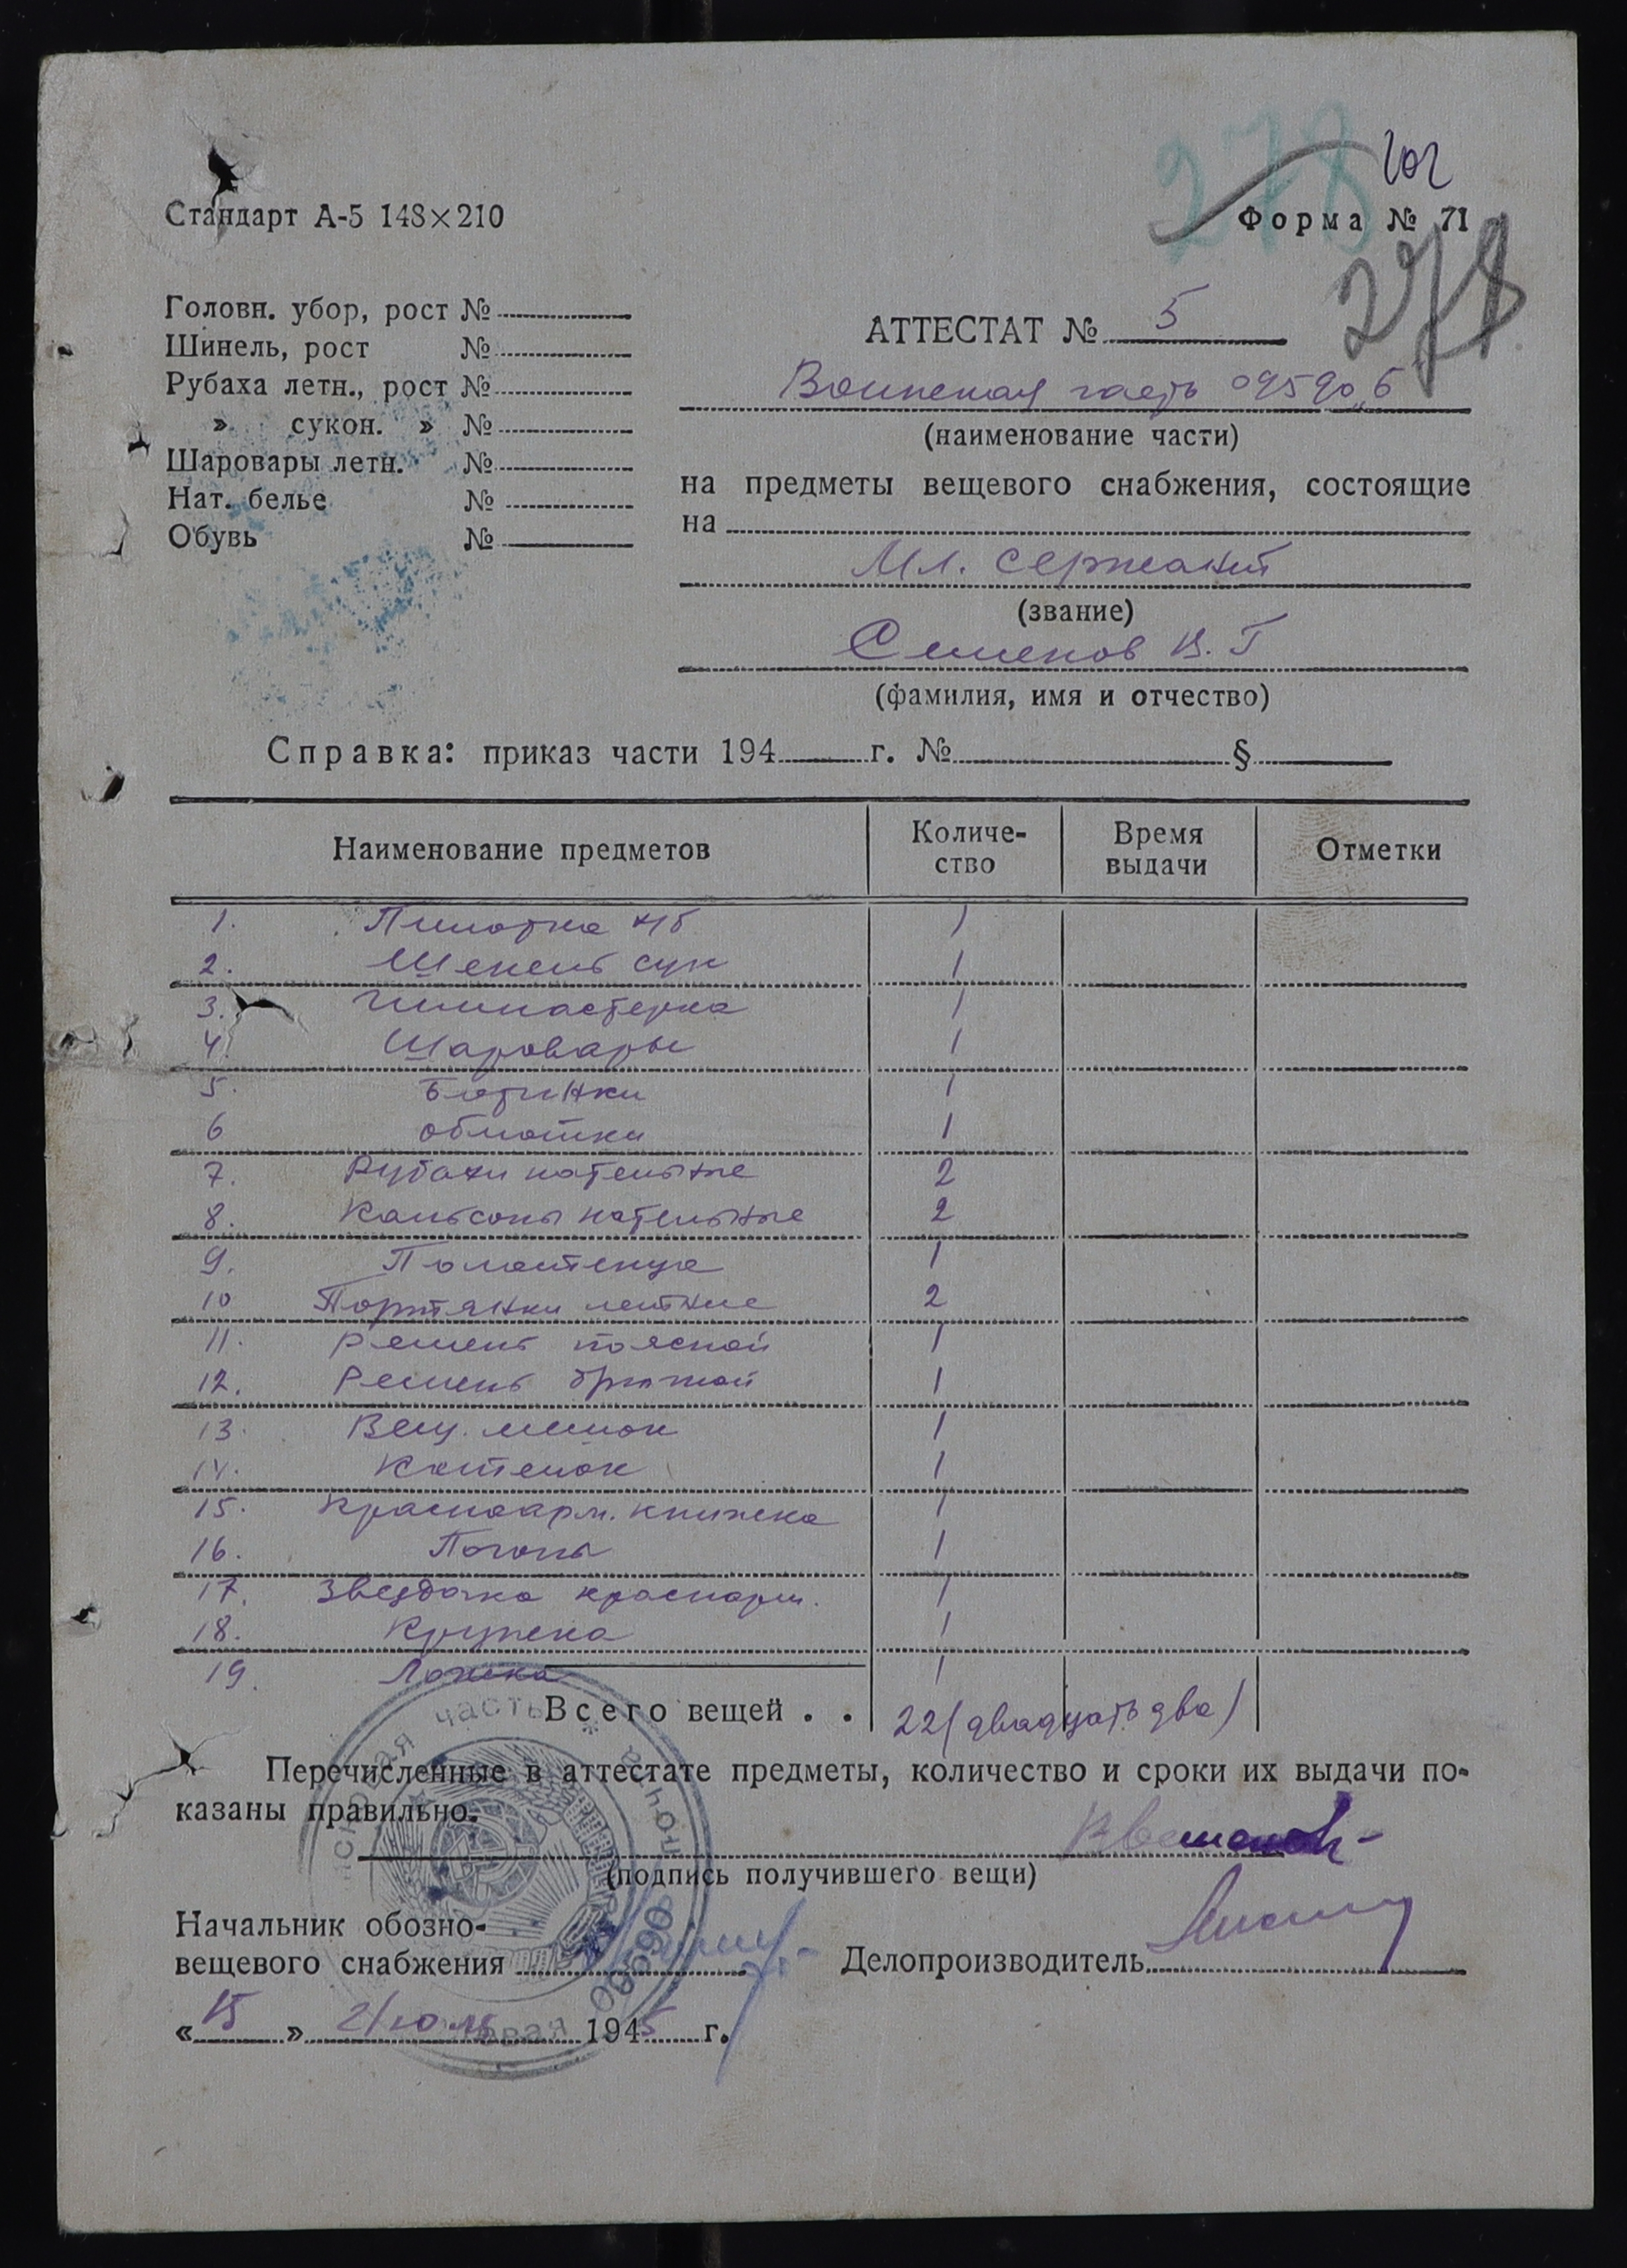 278
102
Стандарт А-5 148×210
Форма № 71
278
Головн. убор, рост №
Шинель, рост №
Рубаха летн., рост №
» сукон. » №
Шаровары летн. №
Нат. белье №
Обувь №
АТТЕСТАТ № 5
Воинская часть
(наименование части)
на предметы вещевого снабжения, состоящие
на
Мл. сержант
(звание)
Семенов В. Г
(фамилия, имя и отчество)
Справка: приказ части 194 г. № §
Наименование предметов Количе-ство Время выдачи Отметки
1. Пилотка х/б 1
2. Шенель сук 1
3. Гимнастерка 1
4. Шаровары 1
5. Ботинки 1
6 обмотки 1
7. Рубахи нательные 2
8. Кальсоны нательные 2
9. Полотенце 1
10 Портянки летние 2
11. Ремень поясной 1
12. Ремень брючной 1
13. Вещ. мешок 1
14. Котелок 1
15. Красноарм. книжка 1
16. Погоны 1
17. Звездочка красноарм. 1
18. Кружка 1
19. Ложка 1
Всего вещей . . 22 (двадцать два)
Перечисленные в аттестате предметы, количество и сроки их выдачи по-
казаны правильно.
(подпись получившего вещи)
Начальник обозно-
вещевого снабжения
Делопроизводитель
« 15 » 1945 г.
часть